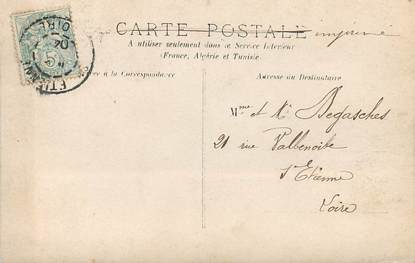 CARTE POSTALE imprimé
A utiliser seulement dans le Service Intérieur
(France, Algérie et Tunisie
à la Correspondance
Adresse du Destinataire
Mme et Mr Degasches
21 rue Valbenoite
St Etienne
Loire
ETIENNE
OIRE
04
5